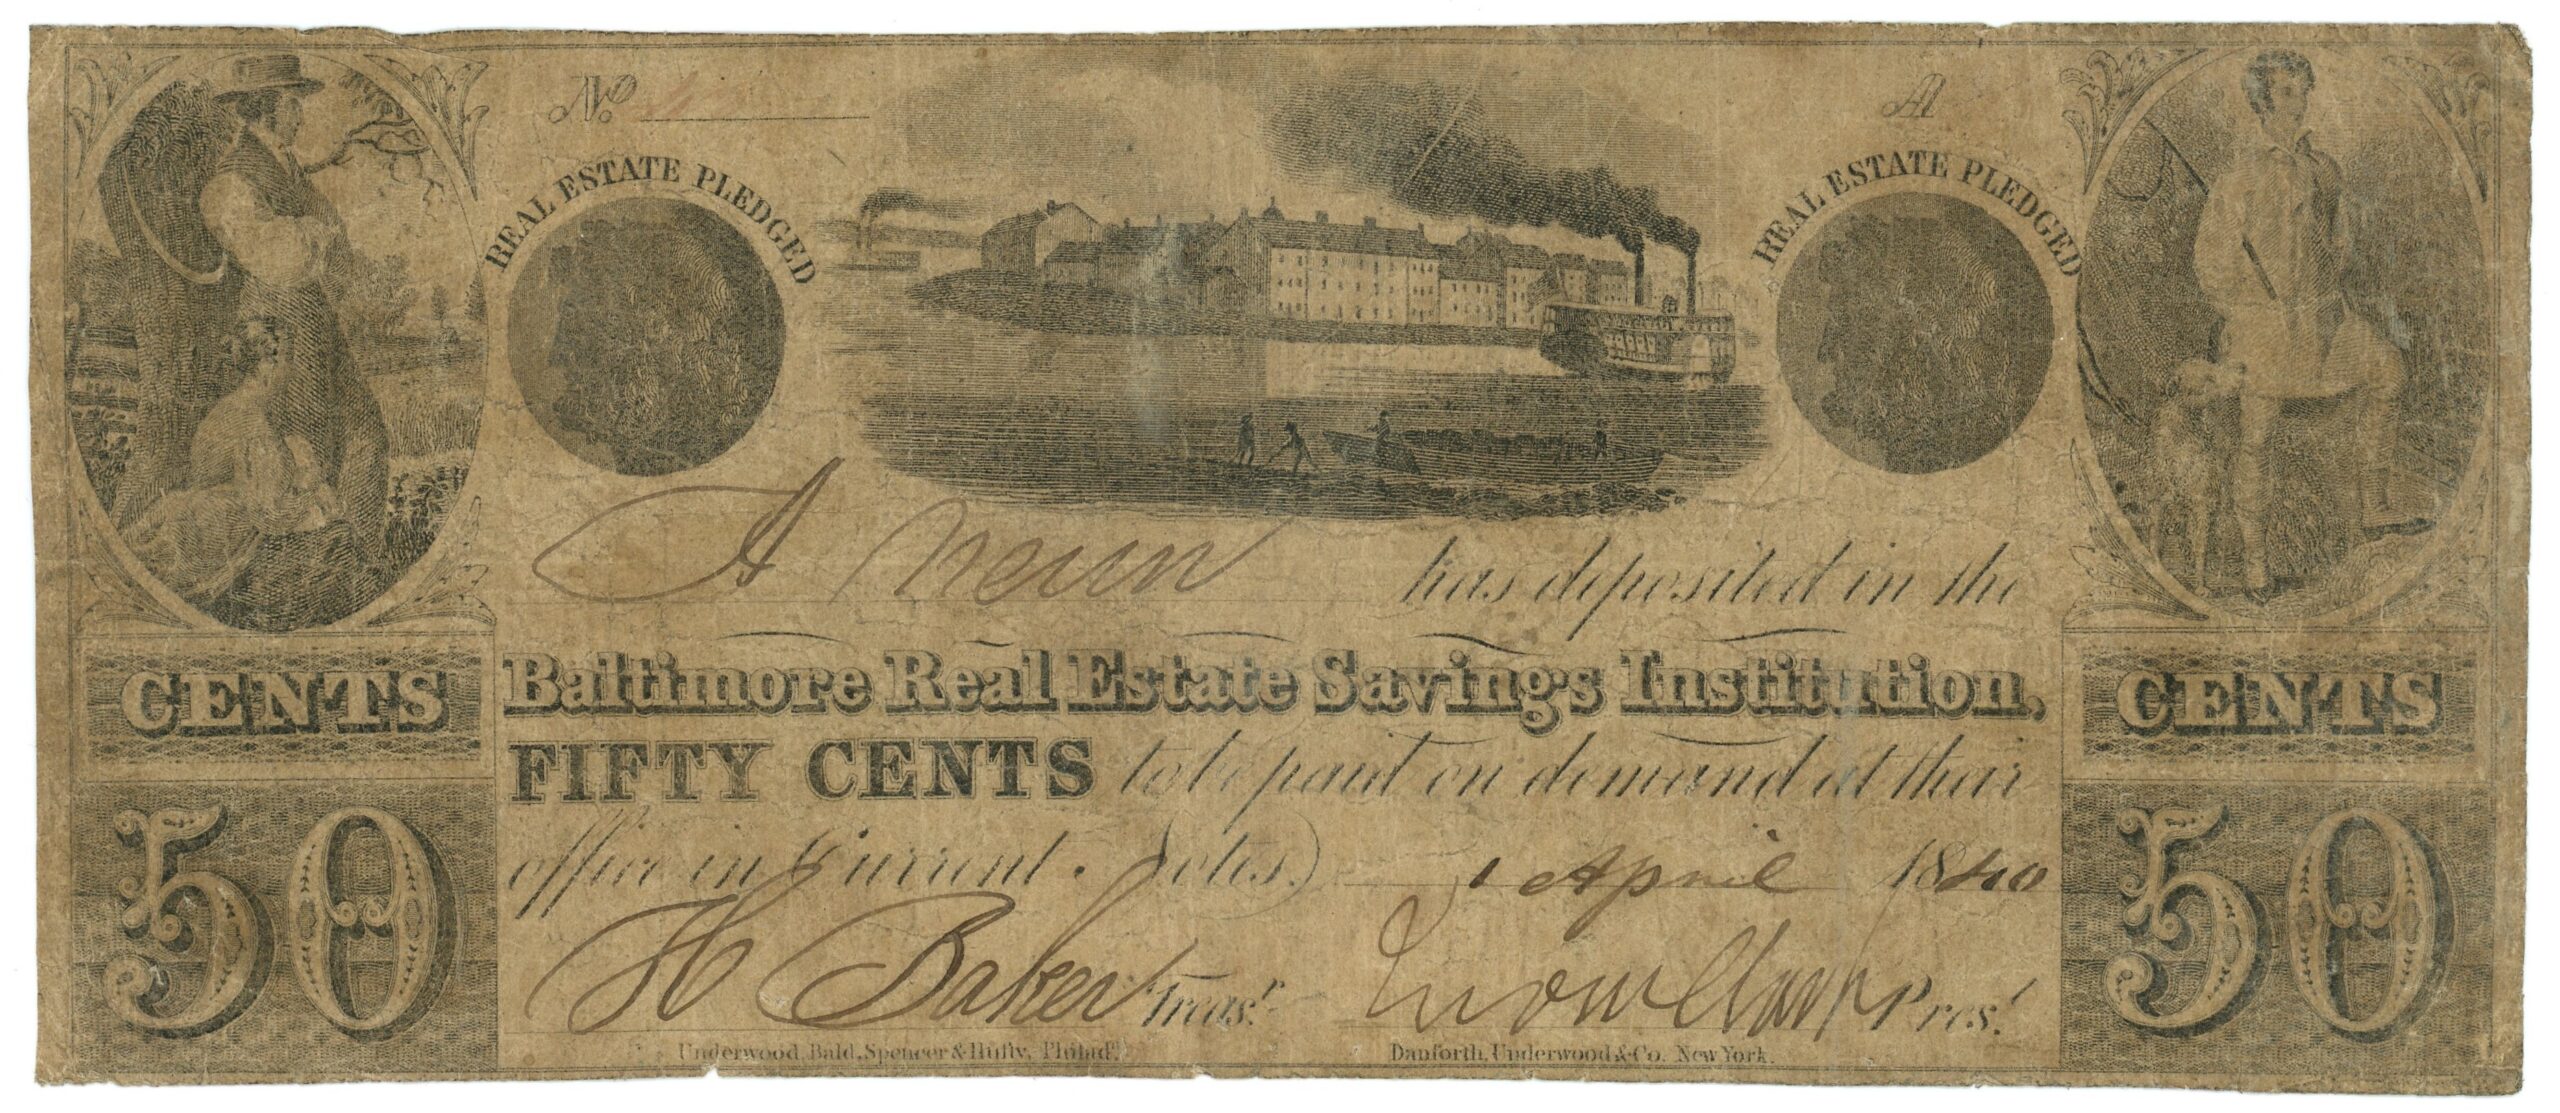 No. A
REAL ESTATE PLEDGED
REAL ESTATE PLEDGED
A has deposited in the
CENTS Baltimore Real Estate Savings Institution, CENTS
FIFTY CENTS to be paid on demand at their
50 office in Current Notes.) 1 April 1840 50
H Baker Treasr. Presr.
Underwood, Bald, Spencer & Hufty, Philada. Danforth, Underwood & Co. New York.